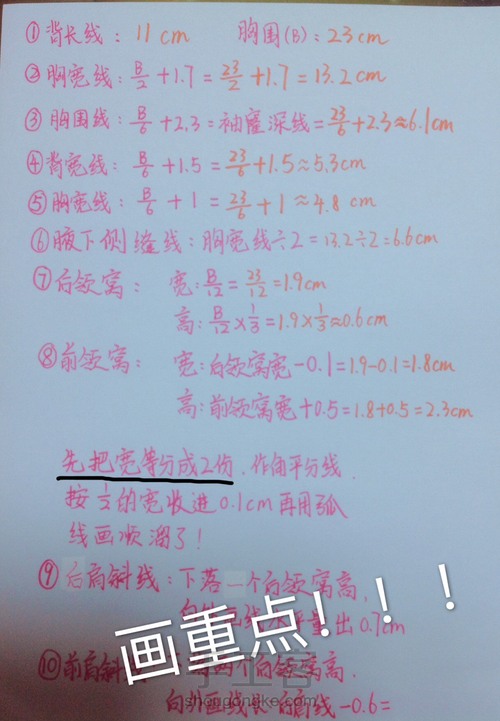 ①背长线: 11cm 胸围(B): 23cm
②胸宽线: B/2+1.7=23/2+1.7=13.2cm
③胸围线: B/6+2.3=袖窿深线=23/6+2.3≈6.1cm
④背宽线: B/6+1.5=23/6+1.5≈5.3cm
⑤胸宽线: B/6+1=23/6+1≈4.8cm
⑥腋下侧缝线:胸宽线÷2=13.2÷2=6.6cm
⑦后领窝: 宽:B/12=23/12=1.9cm
高:B/12×1/3=1.9×1/3≈0.6cm
⑧前领窝: 宽:后领窝宽-0.1=1.9-0.1=1.8cm
高:前领窝宽+0.5=1.8+0.5=2.3cm
先把宽等分成2份.作角平分线.
按1/2的宽收进0.1cm再用弧
线画顺溜了!
⑨后肩斜线:下落一个后领窝高,
量出0.7cm
画重点!!!
⑩前肩斜 两个后领窝高.
向外画线长 肩线-0.6=
手工客
shougongke.com